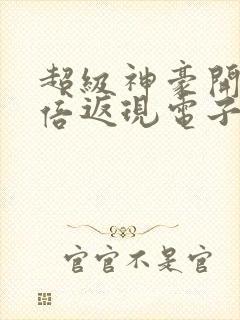 超級神豪開
倍返現電子
官官不是官